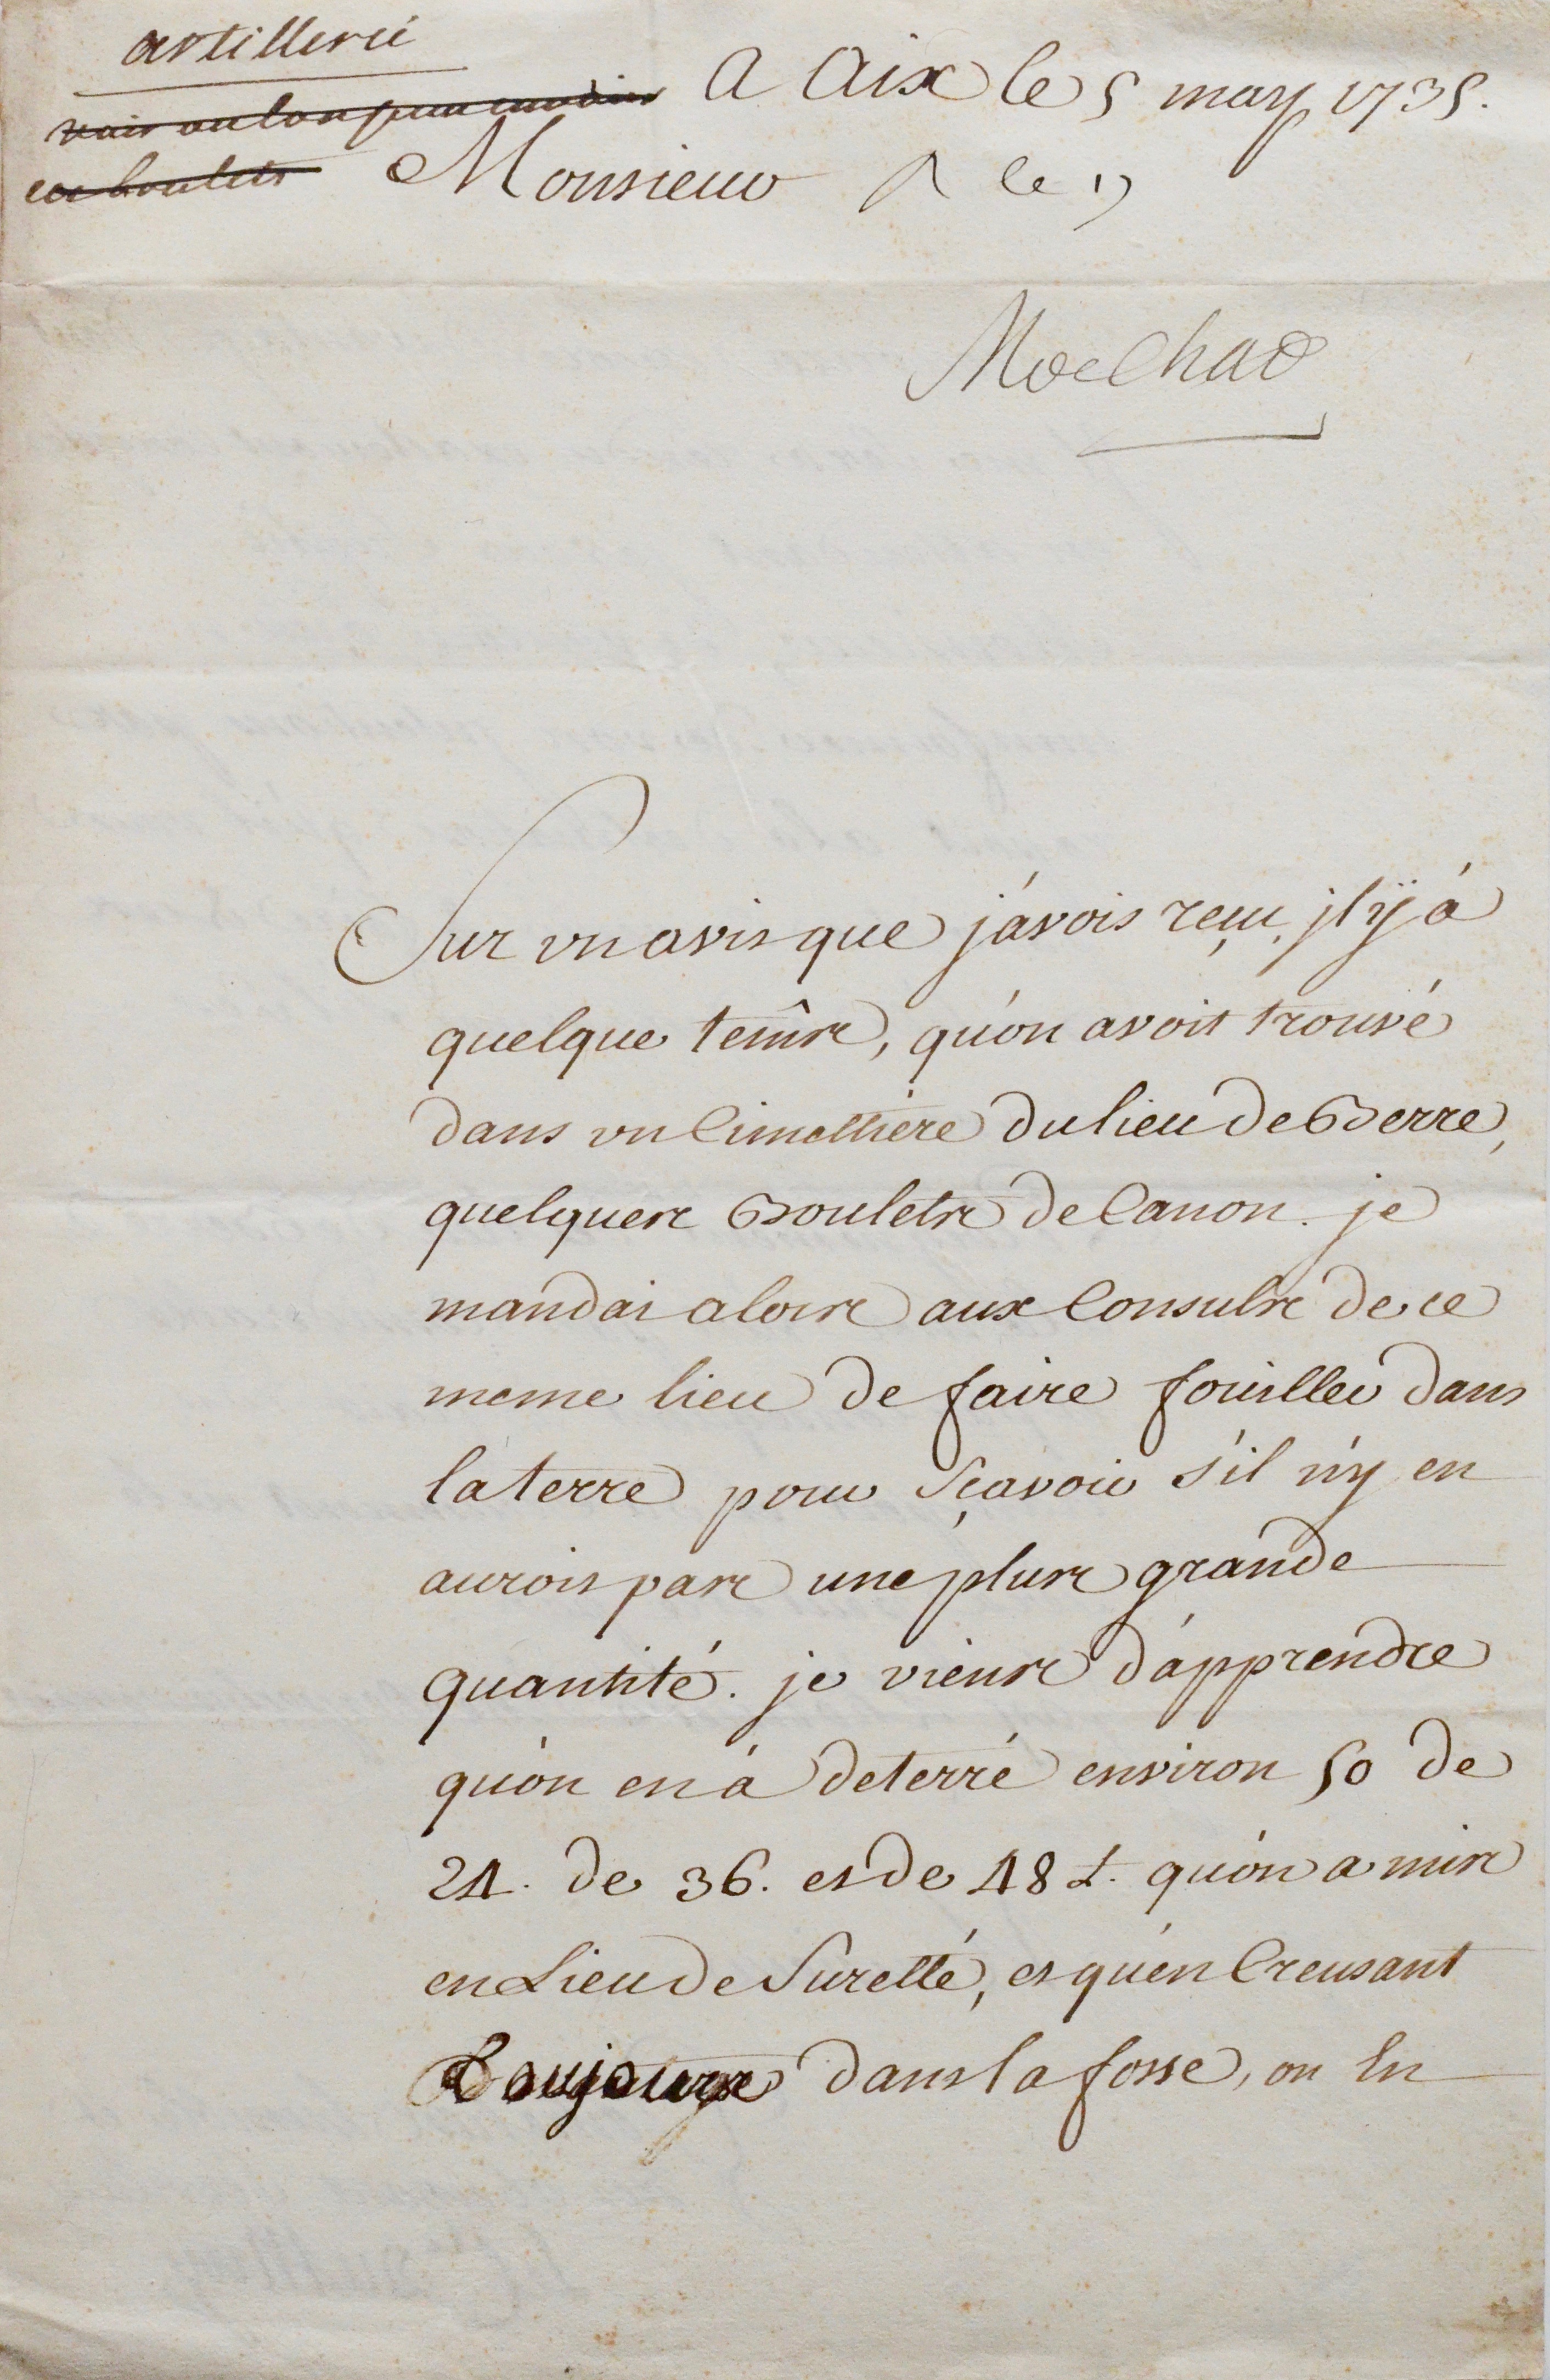 artillerie
A Aix le 5 may 1735.
voir ou l'on peut envoier
ces boulets
Monsieur R le 17
Sur un avis que j'avois reçu, jl ÿ à
quelque temps, qu'on avoit trouvé
dans un Cimettiere du lieu de Berre,
quelques Boulets de Canon. je
mandai alors aux Consuls de ce
meme lieu de faire fouiller dans
la terre pour sçavoir s'il n'y en
auroit pas une plus grande
quantité. je viens d'apprendre
qu'on en à deterré environ 50 de
24. de 36. et de 48 L. qu'on a mis
en Lieu de Suretté, et qu'en Creusant
Toujours dans la fosse, on En